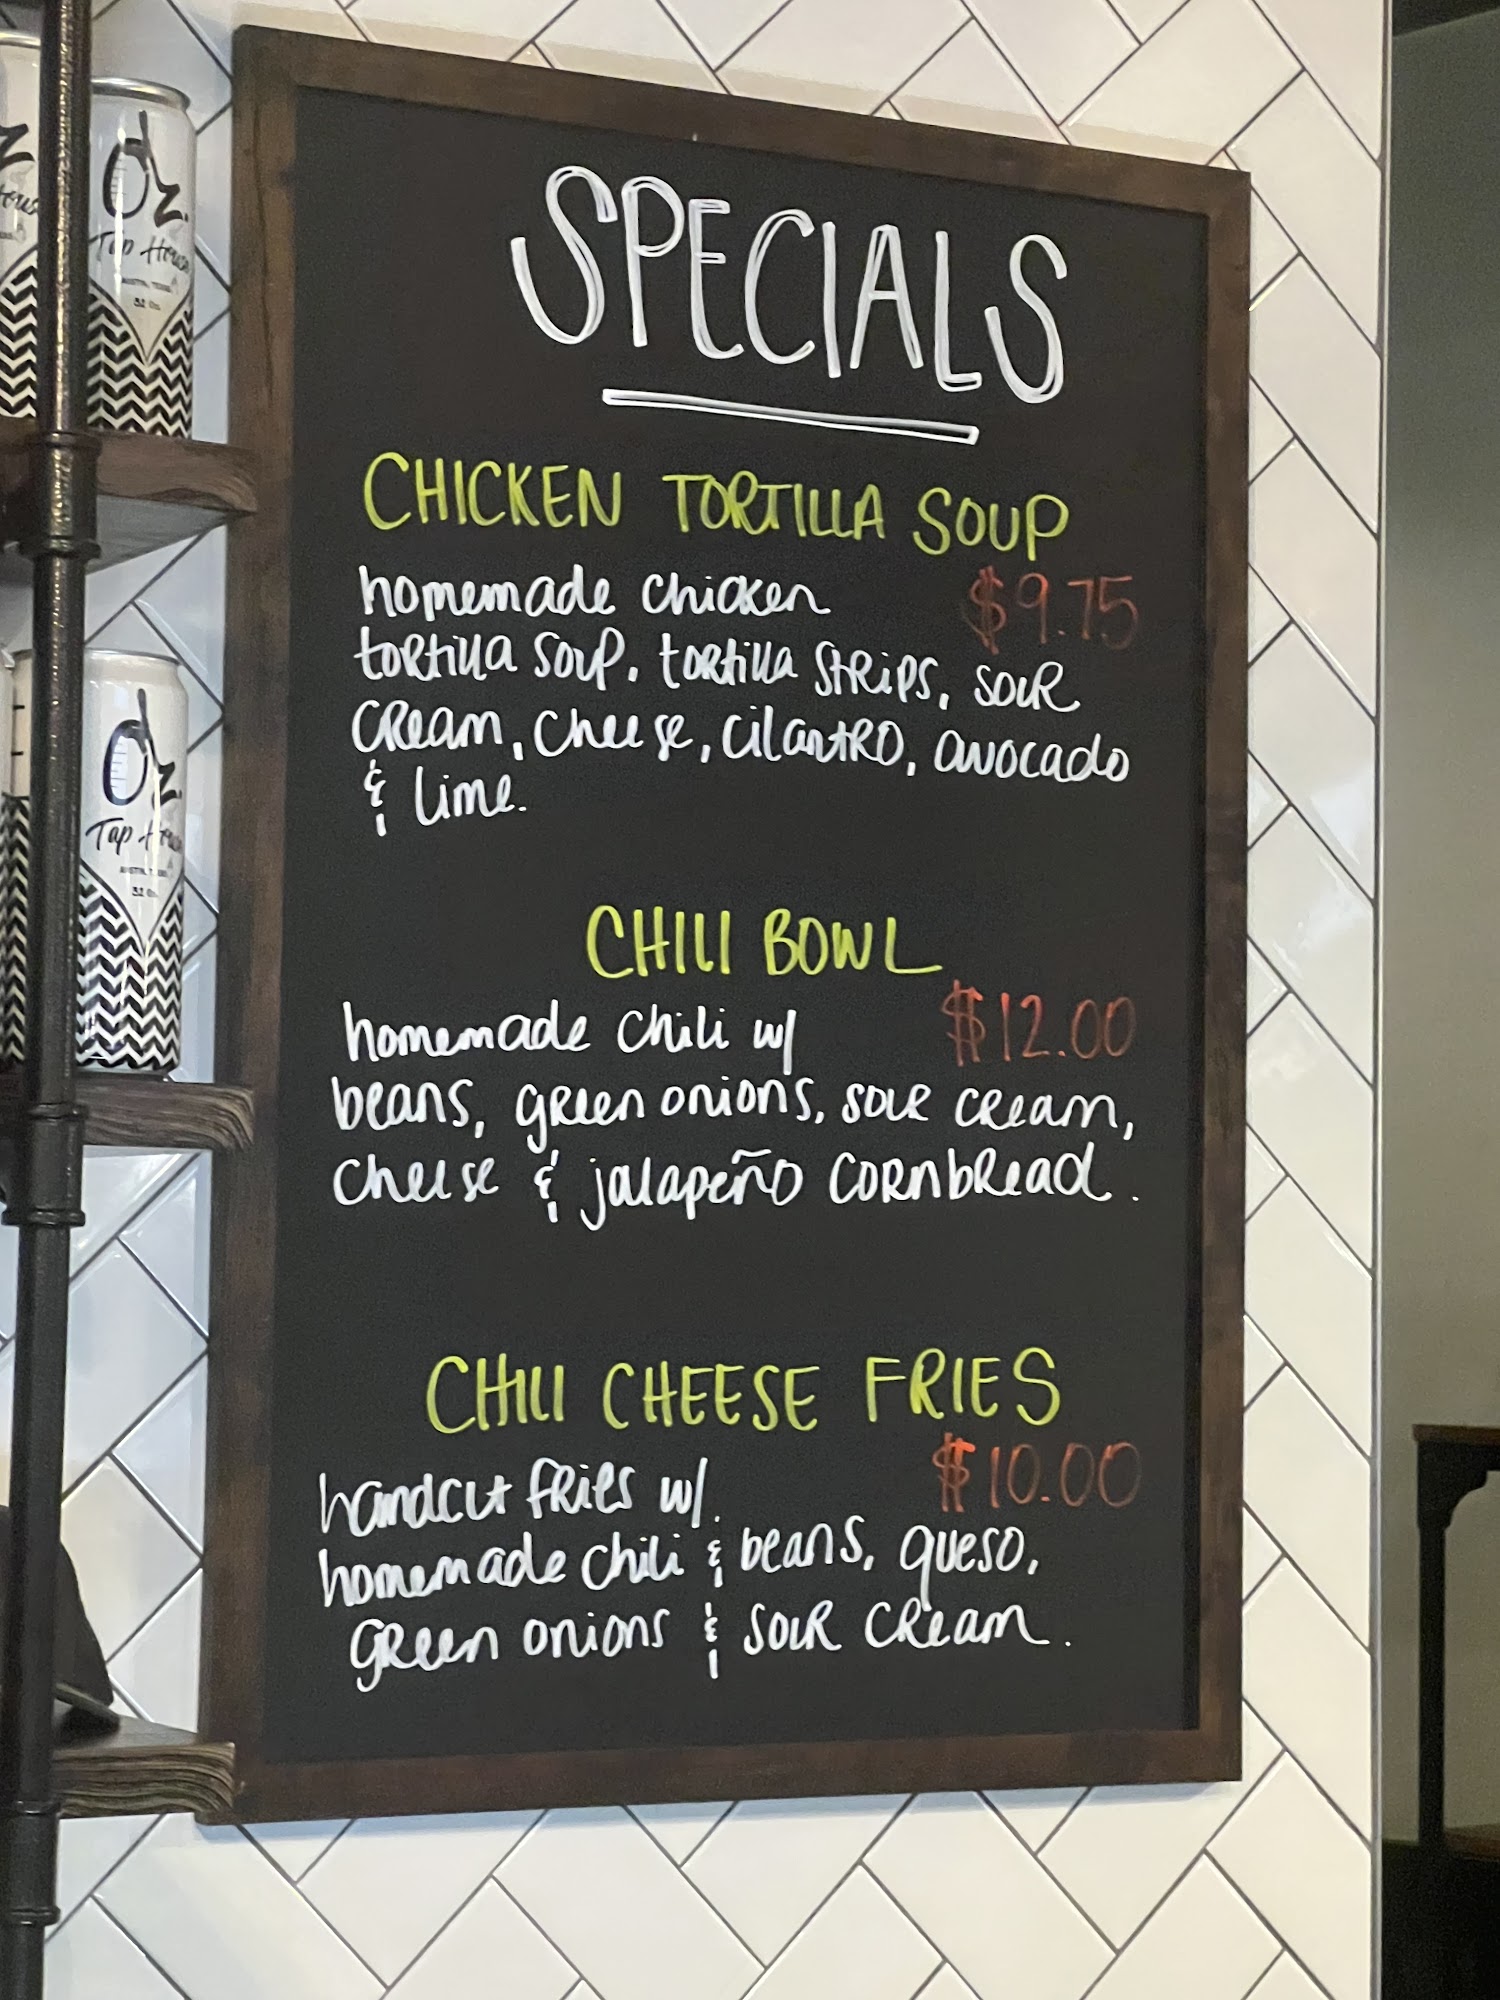 SPECIALS
CHICKEN TORTILLA SOUP
homemade chicken $9.75
tortilla soup, tortilla strips, sour
cream, cheese, cilantro, avocado
& lime.
CHILI BOWL
homemade chili w/ $12.00
beans, green onions, sour cream,
cheese & jalapeño cornbread.
CHILI CHEESE FRIES
handcut fries w/. $10.00
homemade chili & beans, queso,
green onions & sour cream.
Oz.
Tap House
AUSTIN, TEXAS
32 Oz.
Oz.
Tap House
AUSTIN, TEXAS
32 Oz.